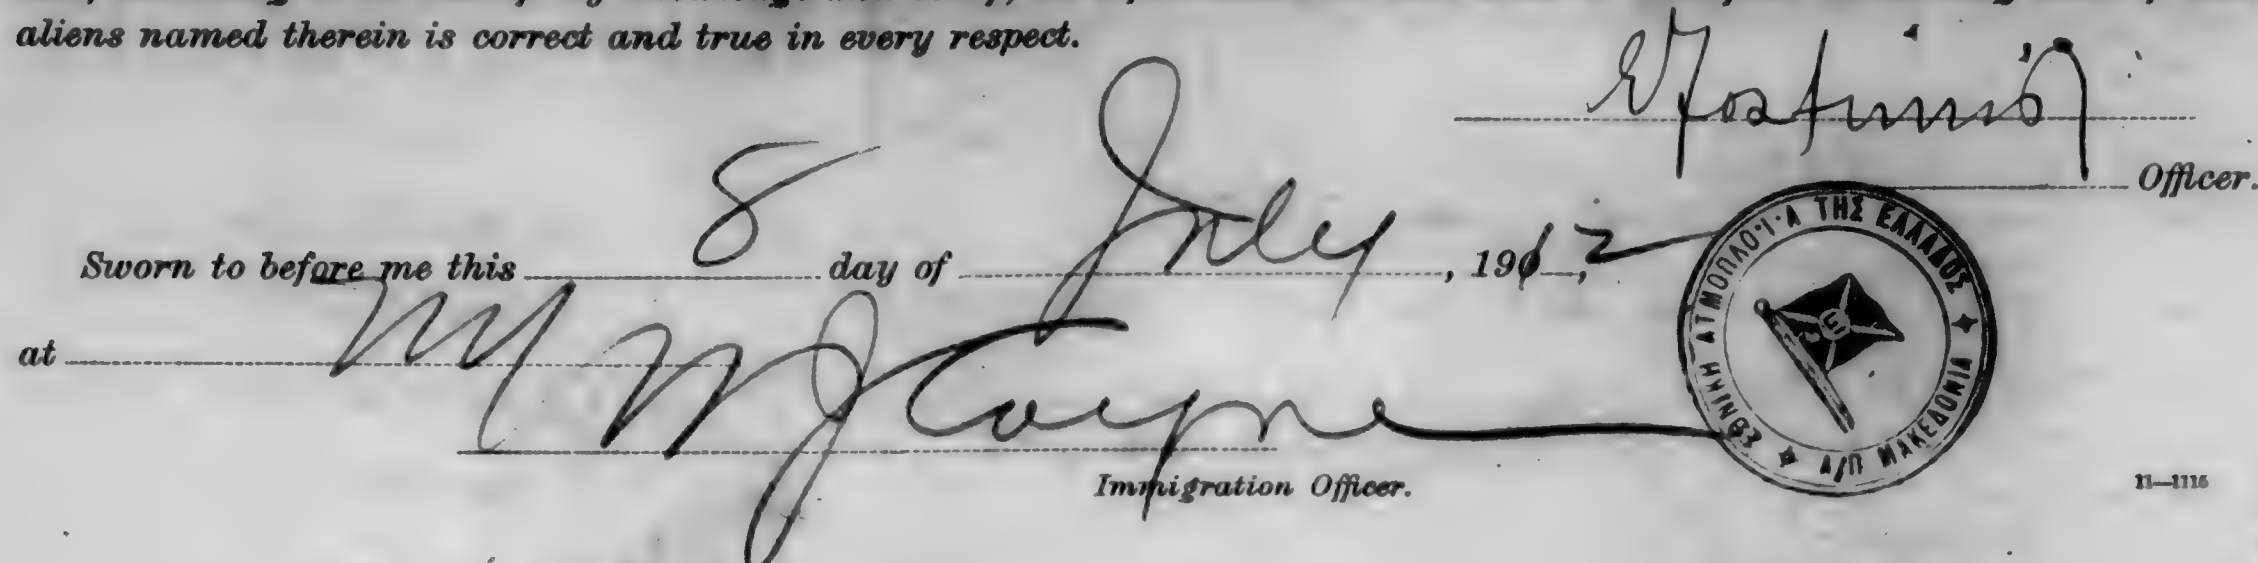 aliens named therein is correct and true in every respect.
Officer.
Sworn to before me this 8 day of July, 1912,
at
M J Coyne
Immigration Officer.
ΕΘΝΙΚΗ ΑΤΜΟΠΛΟΪΑ ΤΗΣ ΕΛΛΑΔΟΣ
Α/Π ΜΑΚΕΔΟΝΙΑ
11—1115